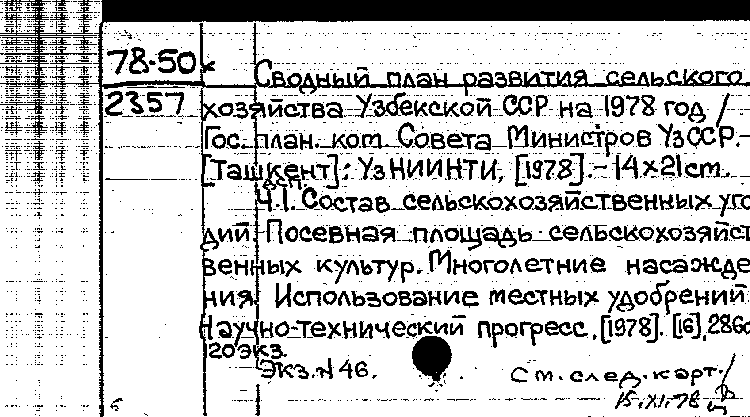 78-50к
2357
Сводный план развития сельского
хозяйства Узбекской ССР на 1978 год /
Гос. план. ком. Совета Министров УзССР.-
[Ташкент]: УзНИИНТИ, [1978].- 14x21cm.
ДСП.
Ч.1. Состав сельскохозяйственных уго
дий. Посевная площадь сельскохозяйст
венных культур. Многолетние насажде
ния. Использование местных удобрений.
Научно-технический прогресс. [1978]. [16], 286с
120 экз.
Экз. N 46.
См. след. карт.
15.XI.78